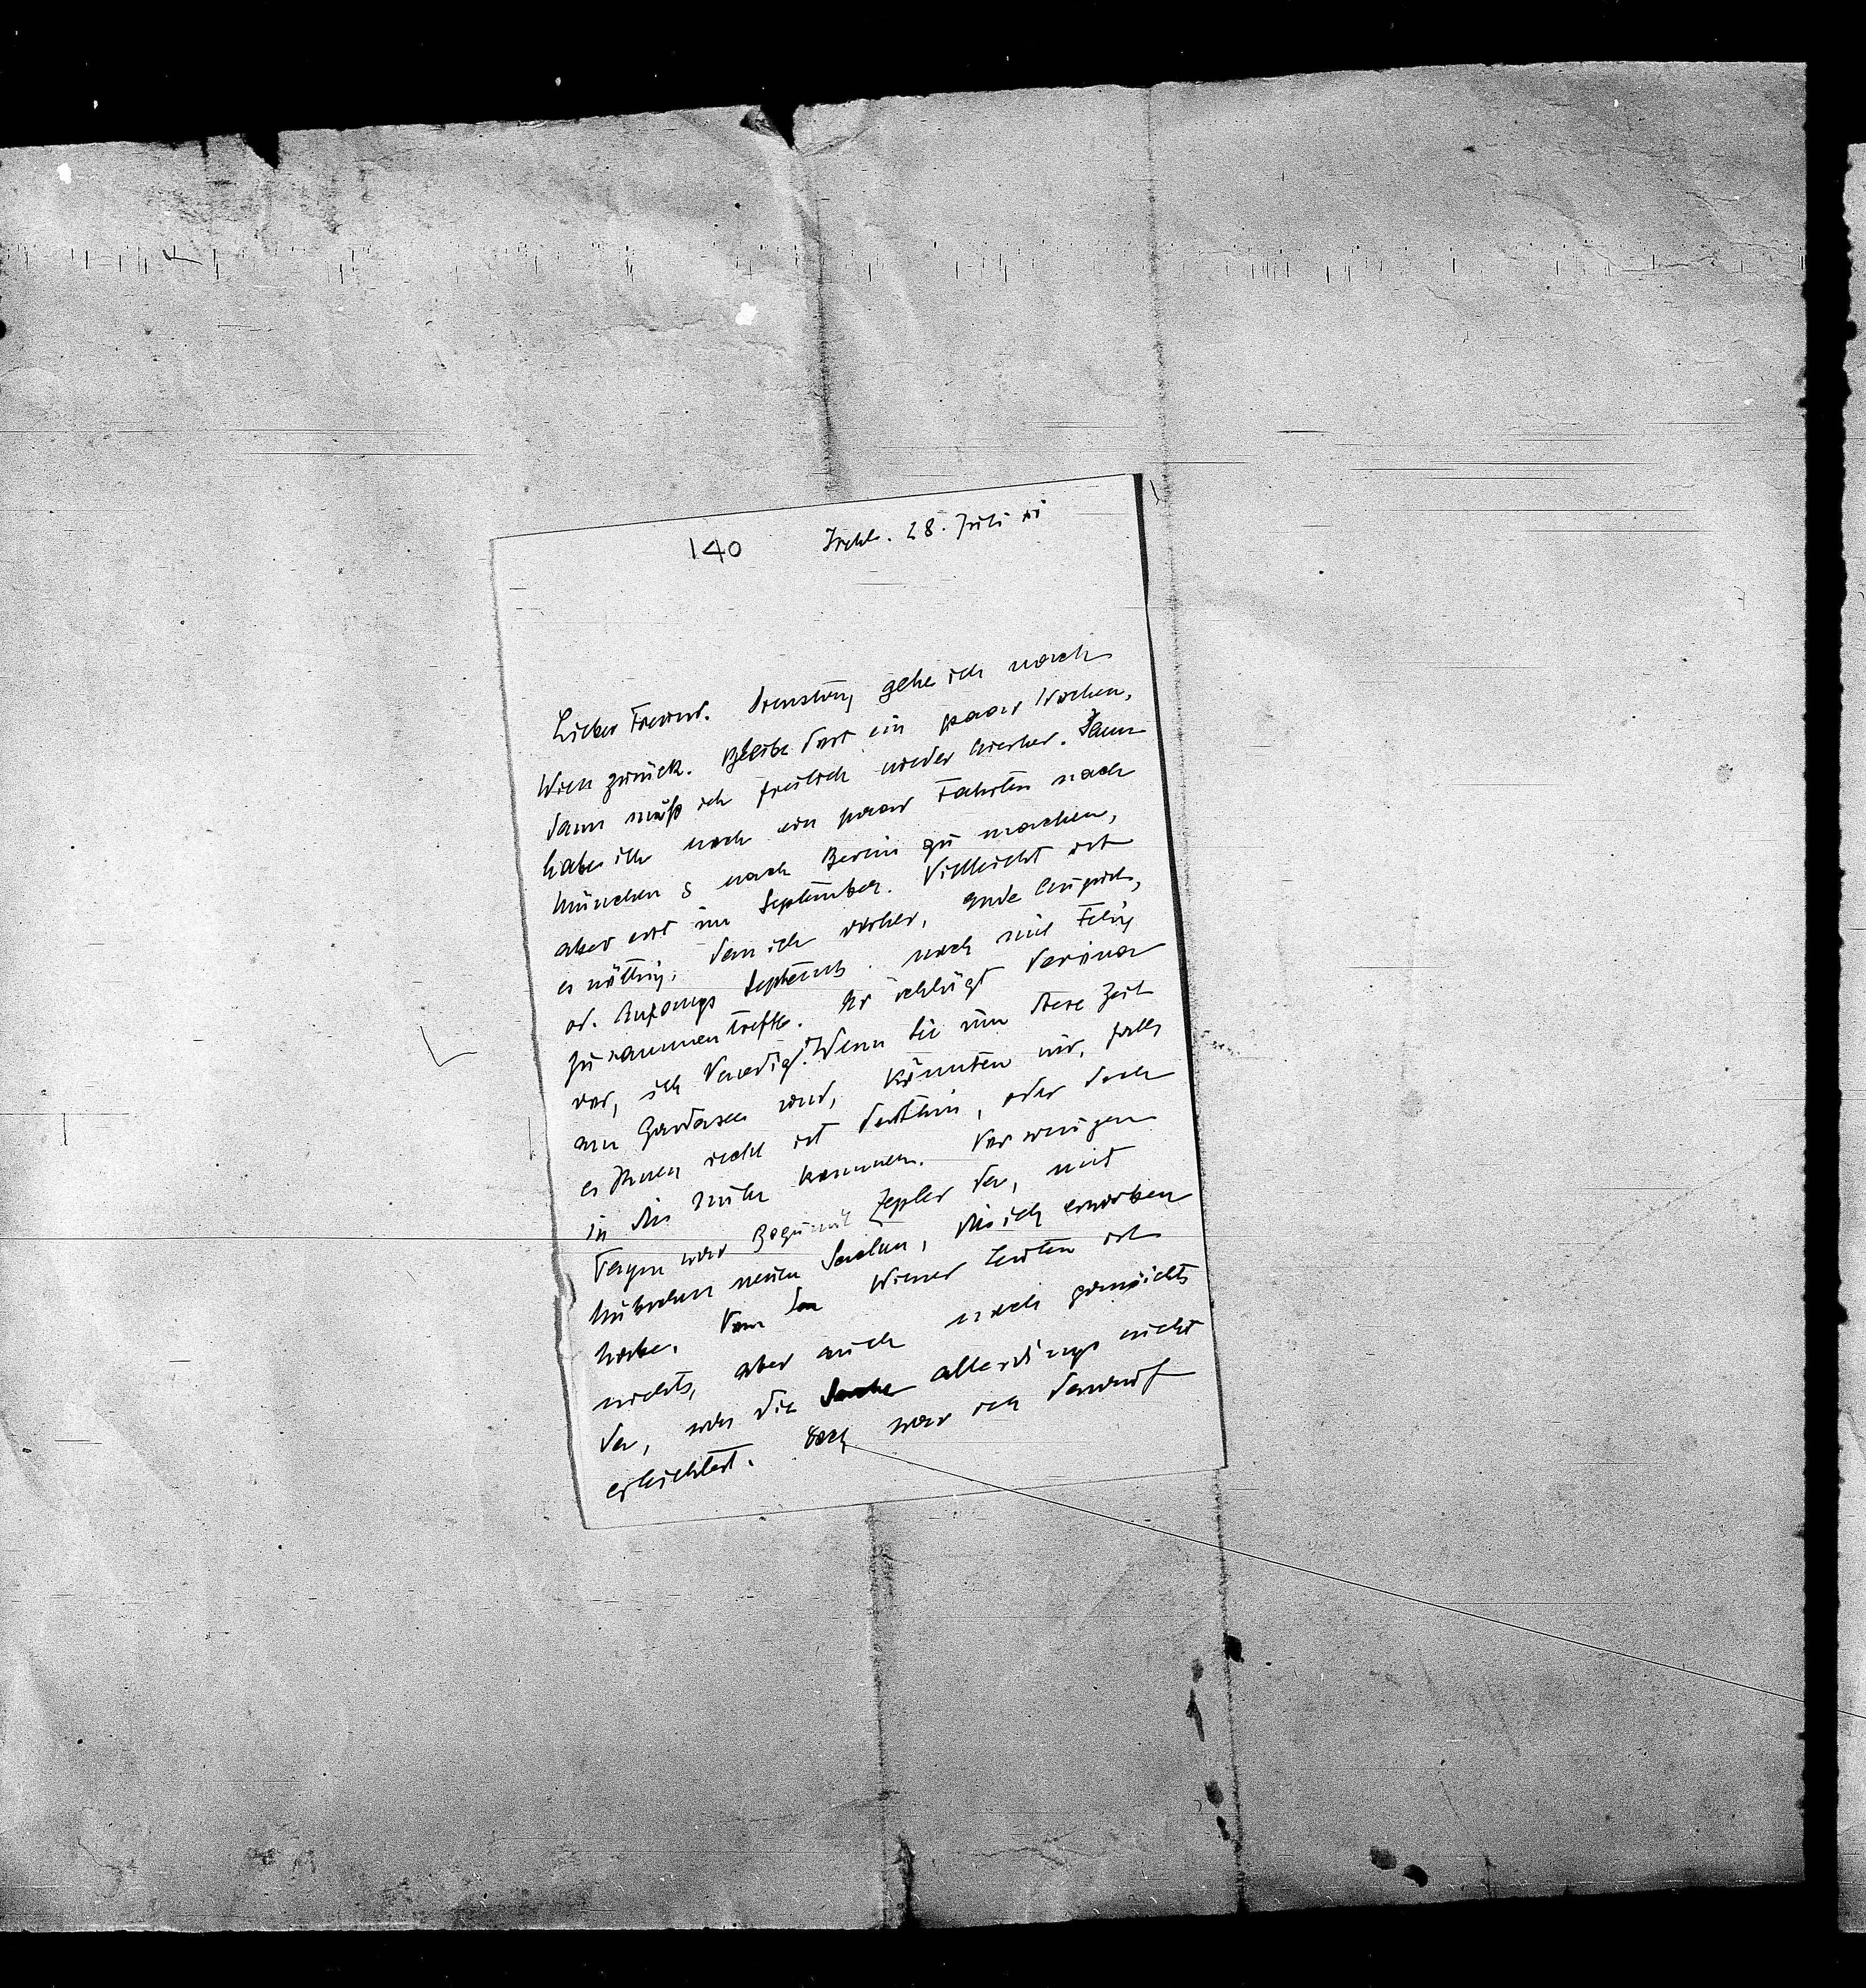 140 Ischl. 28. Juli
Lieber Freund. Dienstag gehe ich nach
Wien zurück. Bleibe dort ein paar Wochen,
dann muß ich freilich wieder hierher. Dann
habe ich noch ein paar Fahrten nach
München & nach Berlin zu machen,
aber erst im September. Vielleicht ist
es nöthig, dass ich vorher, Ende August,
od. Anfangs Septemb. noch mit Felix
zusammentreffe. Er schlägt Verona
vor, ich Venedig. Wenn Sie um diese Zeit
am Gardasee sind, könnten wir, falls
es Ihnen recht ist dorthin, oder doch
in die Nähe kommen. Vor wenigen
Tagen war Bogumil Zepler da, mit
hübschen neuen Sachen, die ich erworben
habe. Von den Wiener Leuten ist
nichts, aber auch noch garnichts
da, was die Sache allerdings nicht
erleichtert. Doch war ich darauf